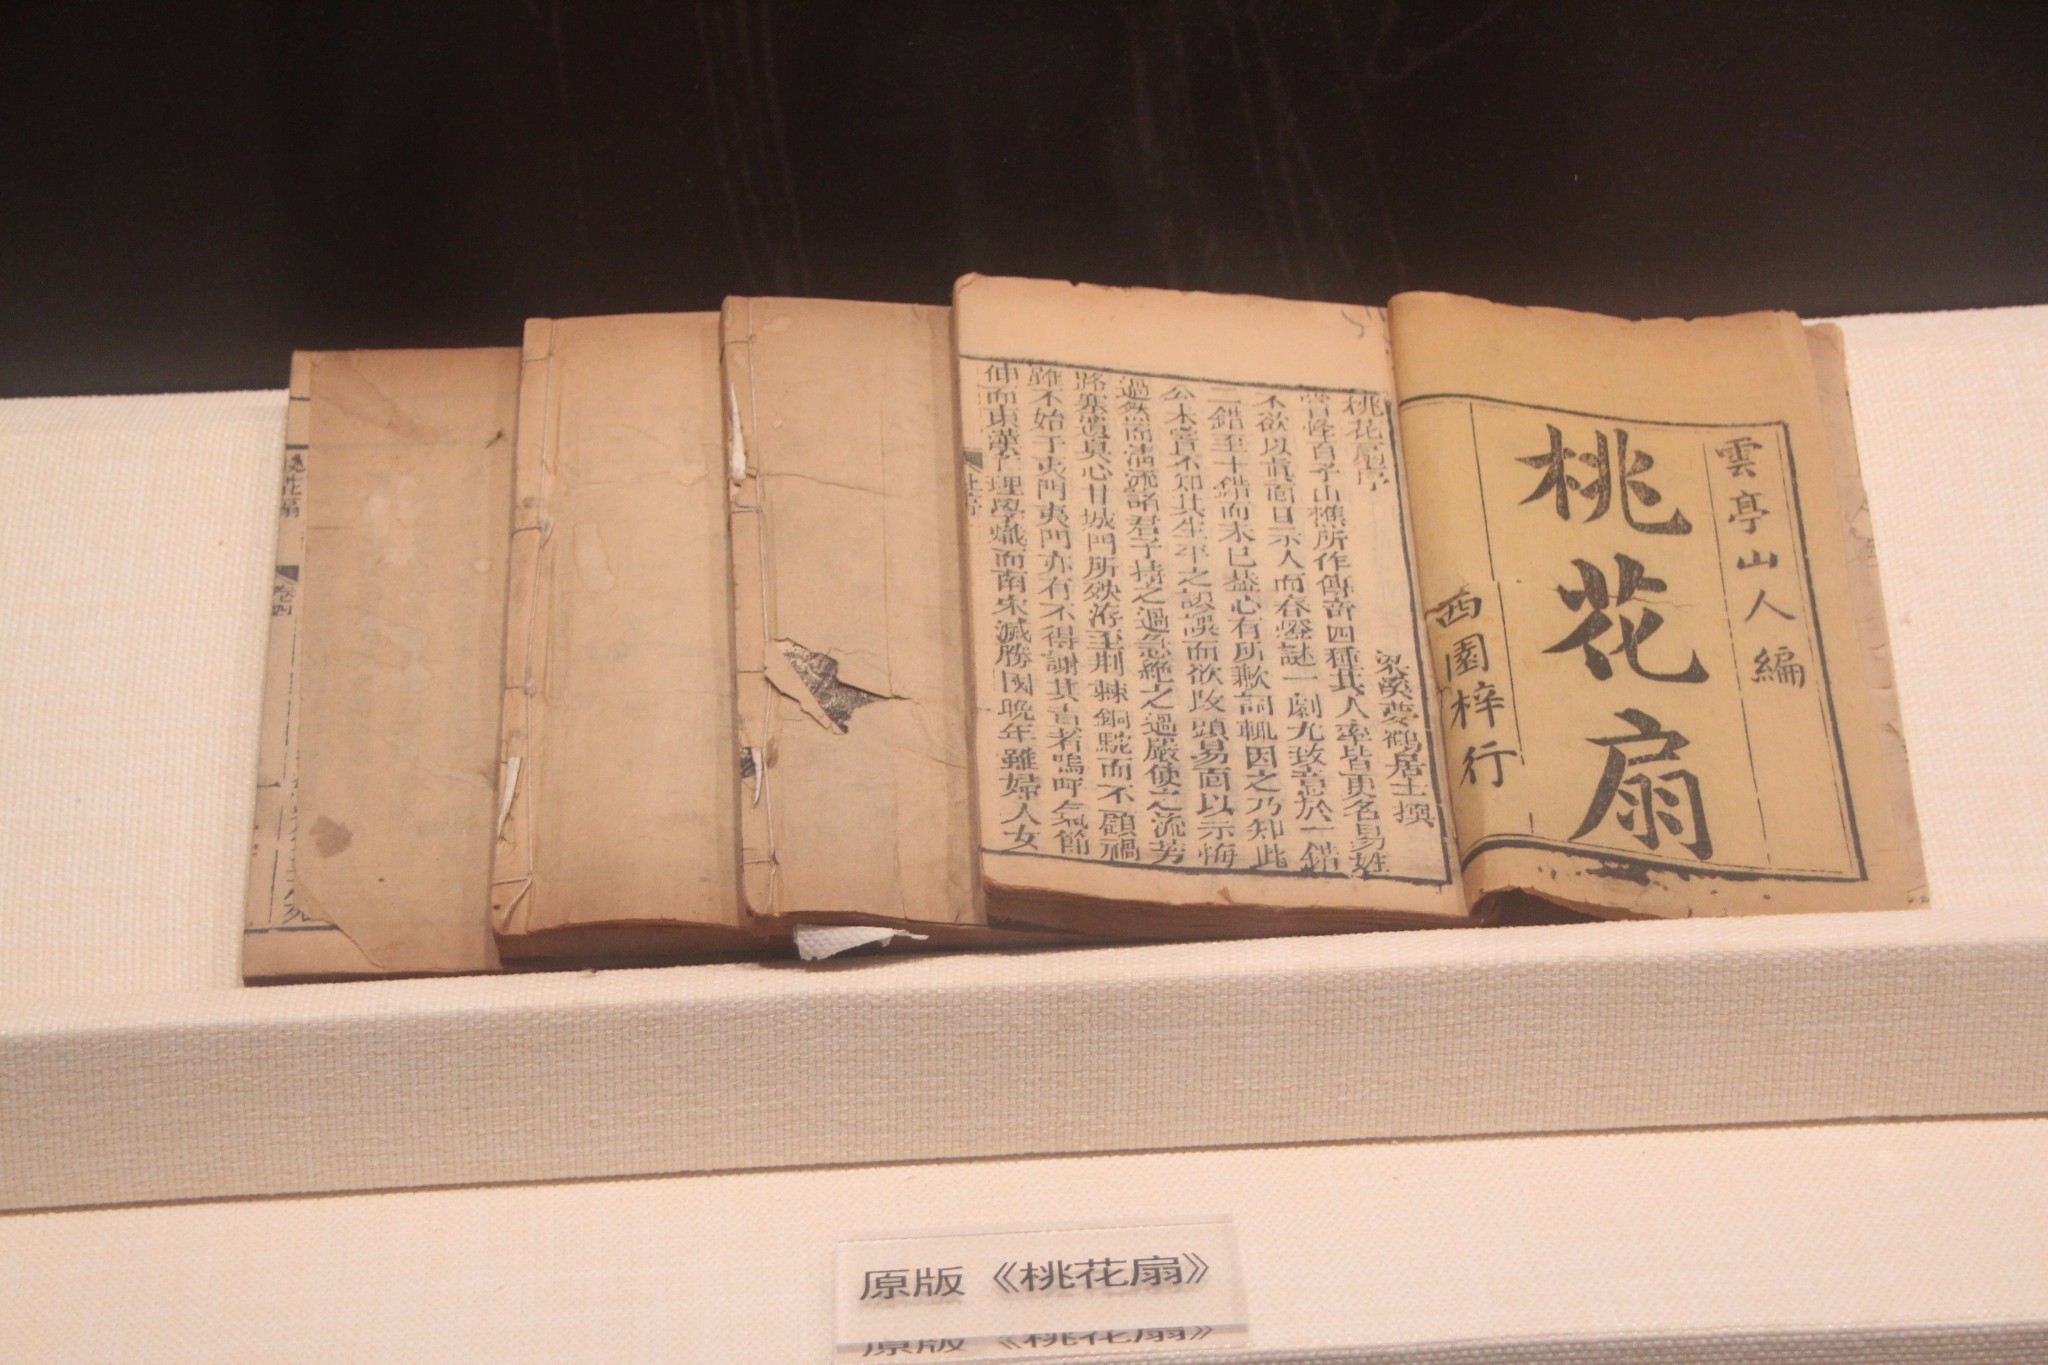 雲亭山人編
桃花扇
西園梓行
桃花扇序
梁溪夢鶴居士撰
嘗怪百子山樵所作傳奇四種其人率皆更名易姓
不欲以眞面目示人而春燈謎一劇尤致意於一錯
二錯至十錯而未已蓋心有所歉詞輒因之乃知此
公未嘗不知其生平之誤而欲改頭易面以示悔
過然而清流諸君子持之過急絶之過嚴使之流芳
路塞遺臭心甘城門所殃洊至荆棘銅駝而不顧禍
雖不始于夷門夷門亦有不得謝其責者嗚呼氣節
伸而東漢亡理學熾而南宋滅勝國晚年雖婦人女
桃花扇
卷四
原版《桃花扇》